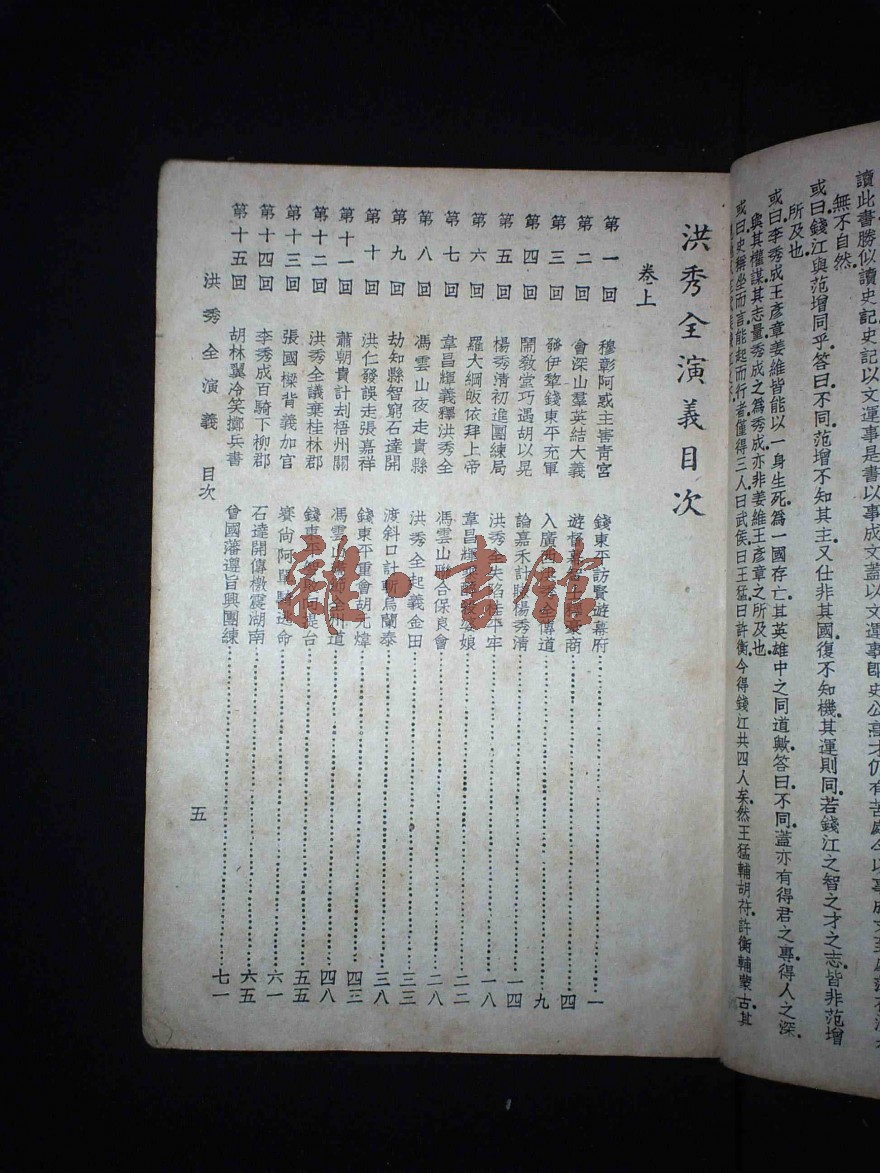 讀此書勝似讀史記史記以文運事是書以事成文蓋以文運事即史公高才仍有苦處今以事成文
無不自然
或曰錢江與范增同乎答曰不同范增不知其主又仕非其國復不知機其運則同若錢江之智之才之志皆非范增
所及也
或曰李秀成王彥章姜維皆能以一身生死為一國存亡其英雄中之同道歟答曰不同蓋亦有得君之專得人之深
與其權謀其志量秀成之為秀成亦非姜維王彥章之所及也
或曰史稱坐而言能起而行者僅得三人曰武侯曰王猛曰許衡今得錢江共四人矣然王猛輔胡苻許衡輔蒙古其
洪秀全演義目次
卷上
第一回 穆彰阿惑主害青宮 錢東平訪賢遊幕府 一
第二回 會深山羣英結大義 遊督 商 四
第三回 發伊犂錢東平充軍 入廣西 全傳道 九
第四回 鬧教堂巧遇胡以晃 論嘉禾計賺楊秀清 一四
第五回 楊秀清初進團練局 洪秀全失陷桂平牢 一八
第六回 羅大綱皈依拜上帝 韋昌輝 娘 二二
第七回 韋昌輝義釋洪秀全 馮雲山聯合保良會 二八
第八回 馮雲山夜走貴縣 洪秀全起義金田 三三
第九回 劫知縣智窮石達開 渡斜口計斬烏蘭泰 三八
第十回 洪仁發誤走張嘉祥 錢東平重會胡元煒 四三
第十一回 蕭朝貴計刦梧州關 馮雲山 全州道 四八
第十二回 洪秀全議棄桂林郡 錢東平 向提台 五五
第十三回 張國樑背義加官 賽尚阿單騎逃命 六一
第十四回 李秀成百騎下柳郡 石達開傳檄震湖南 六五
第十五回 胡林翼冷笑擲兵書 曾國藩遵旨興團練 七一
洪秀全演義 目次
五
雜·書館